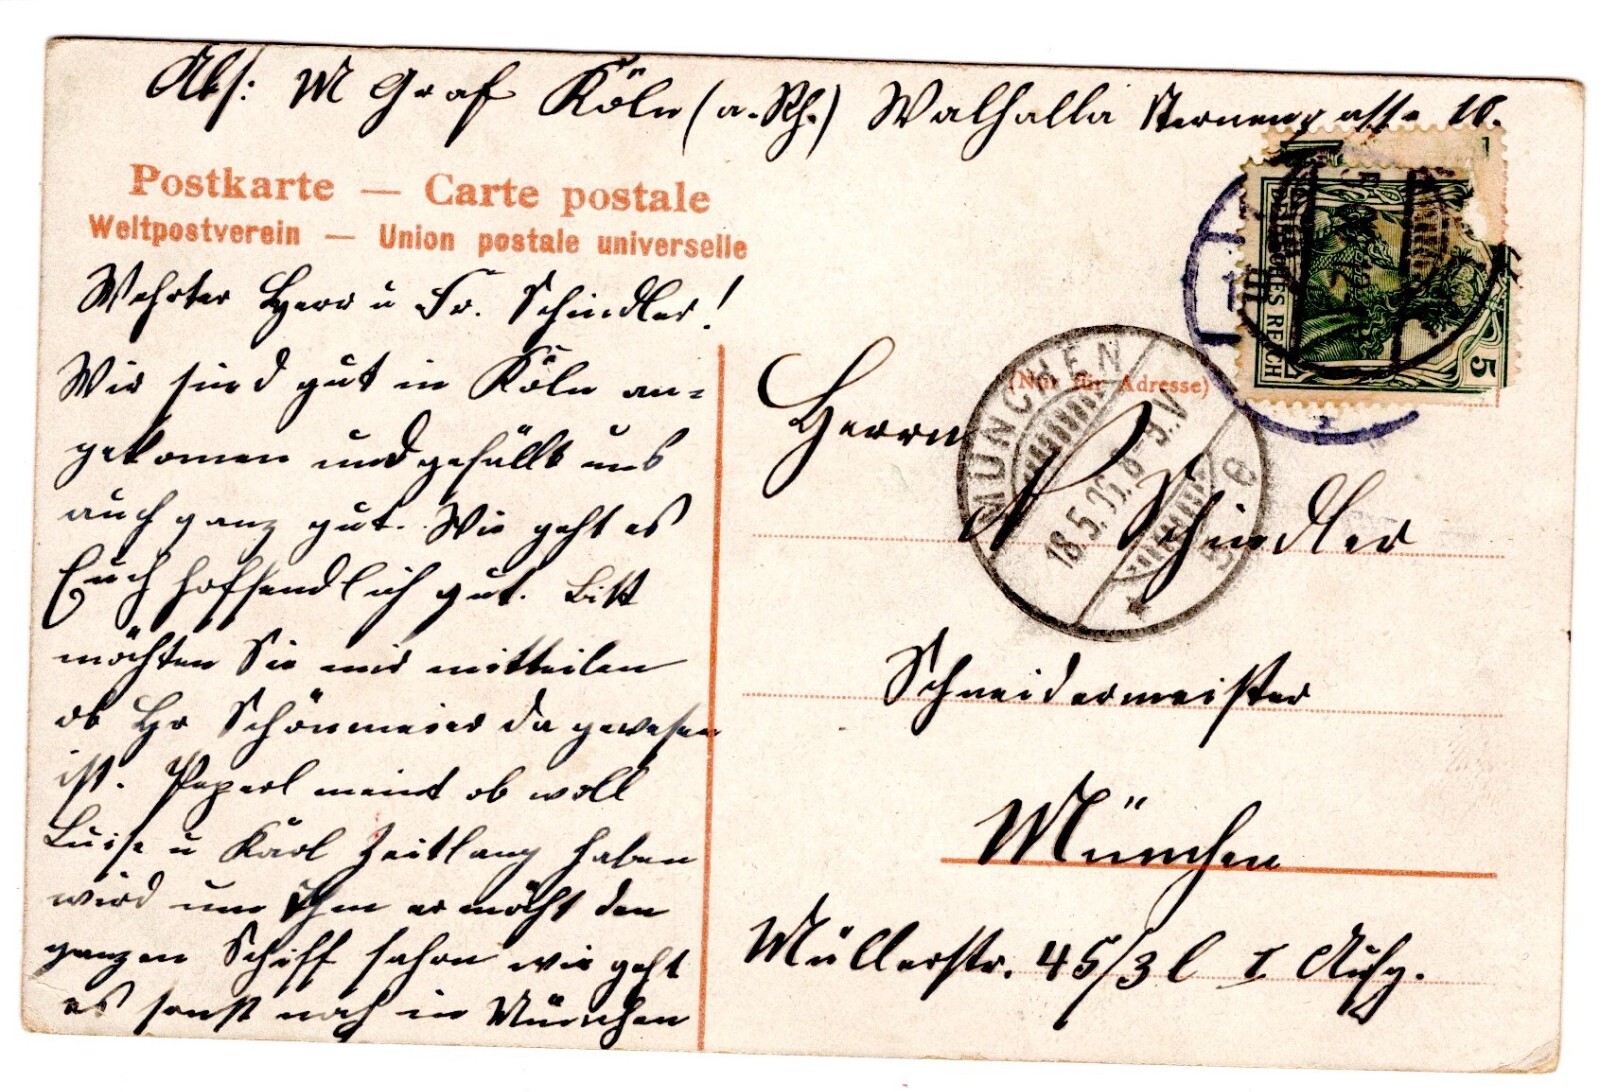 Abs: M Graf Köln (a. Rh.) Walhalla Sternengasse 10.
Postkarte — Carte postale
Weltpostverein — Union postale universelle
Wehrter Herr u Fr. Schindler!
Wir sind gut in Köln an=
gekomen und gefällt uns
auch ganz gut. Wie geht es
Euch hoffendlich gut. Bitt
möchten Sie mir mitteilen
ob Hr Schönmeier da gewesen
ist. Peperl meint ob woll
Luise u Karl Zeitlang haben
wird um Ihm er möcht den
ganzen Schiff fahrn wie geht
es sonst noch in München
DEUTSCHES REICH
5
(Nur für Adresse)
MÜNCHEN
18.5.06. 8-9.V
Herrn
Schindler
Schneidermeister
München
Müllerstr. 45/3 l I Aufg.